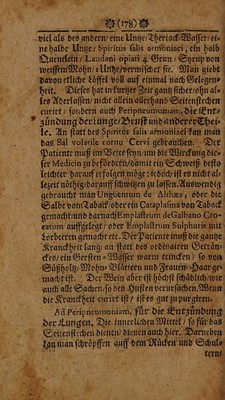 (178)
viel als des andern / eine Untze / Theriack-Wasser / ei-
ne halbe Untze / Spiritus salis armoniaci, ein halb
Quentlein / Laudani opiati 4. Gran / Syrup von
weissem Mohn / 1 Untze / vermischet sie. Man giebt
davon etliche Löffel voll auf einmal nach Gelegen-
heit. Dieses hat in kurtzer Zeit gantz sicher / ohn al-
les Aderlassen / nicht allein allerhand Seitenstechen
curirt / sondern auch Peripneumoniam, die Ent-
zündung der Lunge / Brust und anderer Thei-
le. An statt des Spiritus salis armoniaci kan man
das Sal volatile cornu Cervi gebrauchen. Der
Patiente muß im Bette seyn um die Wirckung die-
ser Medicin zu befördern / damit ein Schweiß desto
leichter darauf erfolgen möge: jedoch ist es nicht al-
lezeit nöthig darauf schwitzen zu lassen. Auswendig
gebraucht man Unguentum de Althæa, oder die
Salbe von Taback / oder ein Cataplasma von Taback
gemacht und darnach Emplastrum de Galbano Cro-
ceatum auffgelegt / oder Emplastrum Sulphuris mit
Lorbeeren gemacht etc. Der Patiente muß die gantze
Kranckheit lang an statt des ordinairen Geträn-
ckes / ein Gersten-Wasser warm trincken / so von
Süßholtz / Mohn-Blättern und Frauen-Haar ge-
macht ist. Der Wein aber ist höchst schädlich / wie
auch alle Sachen / so den Husten verursachen. Wenn
die Kranckheit curirt ist / ist es gut zu purgiren.
Ad Peripneumoniam, für die Entzündung
der Lungen. Die innerlichen Mittel / so für das
Seitenstechen dienen / dienen auch hier. Darneben
kan man schröpffen auff dem Rücken und Schul-
tern /